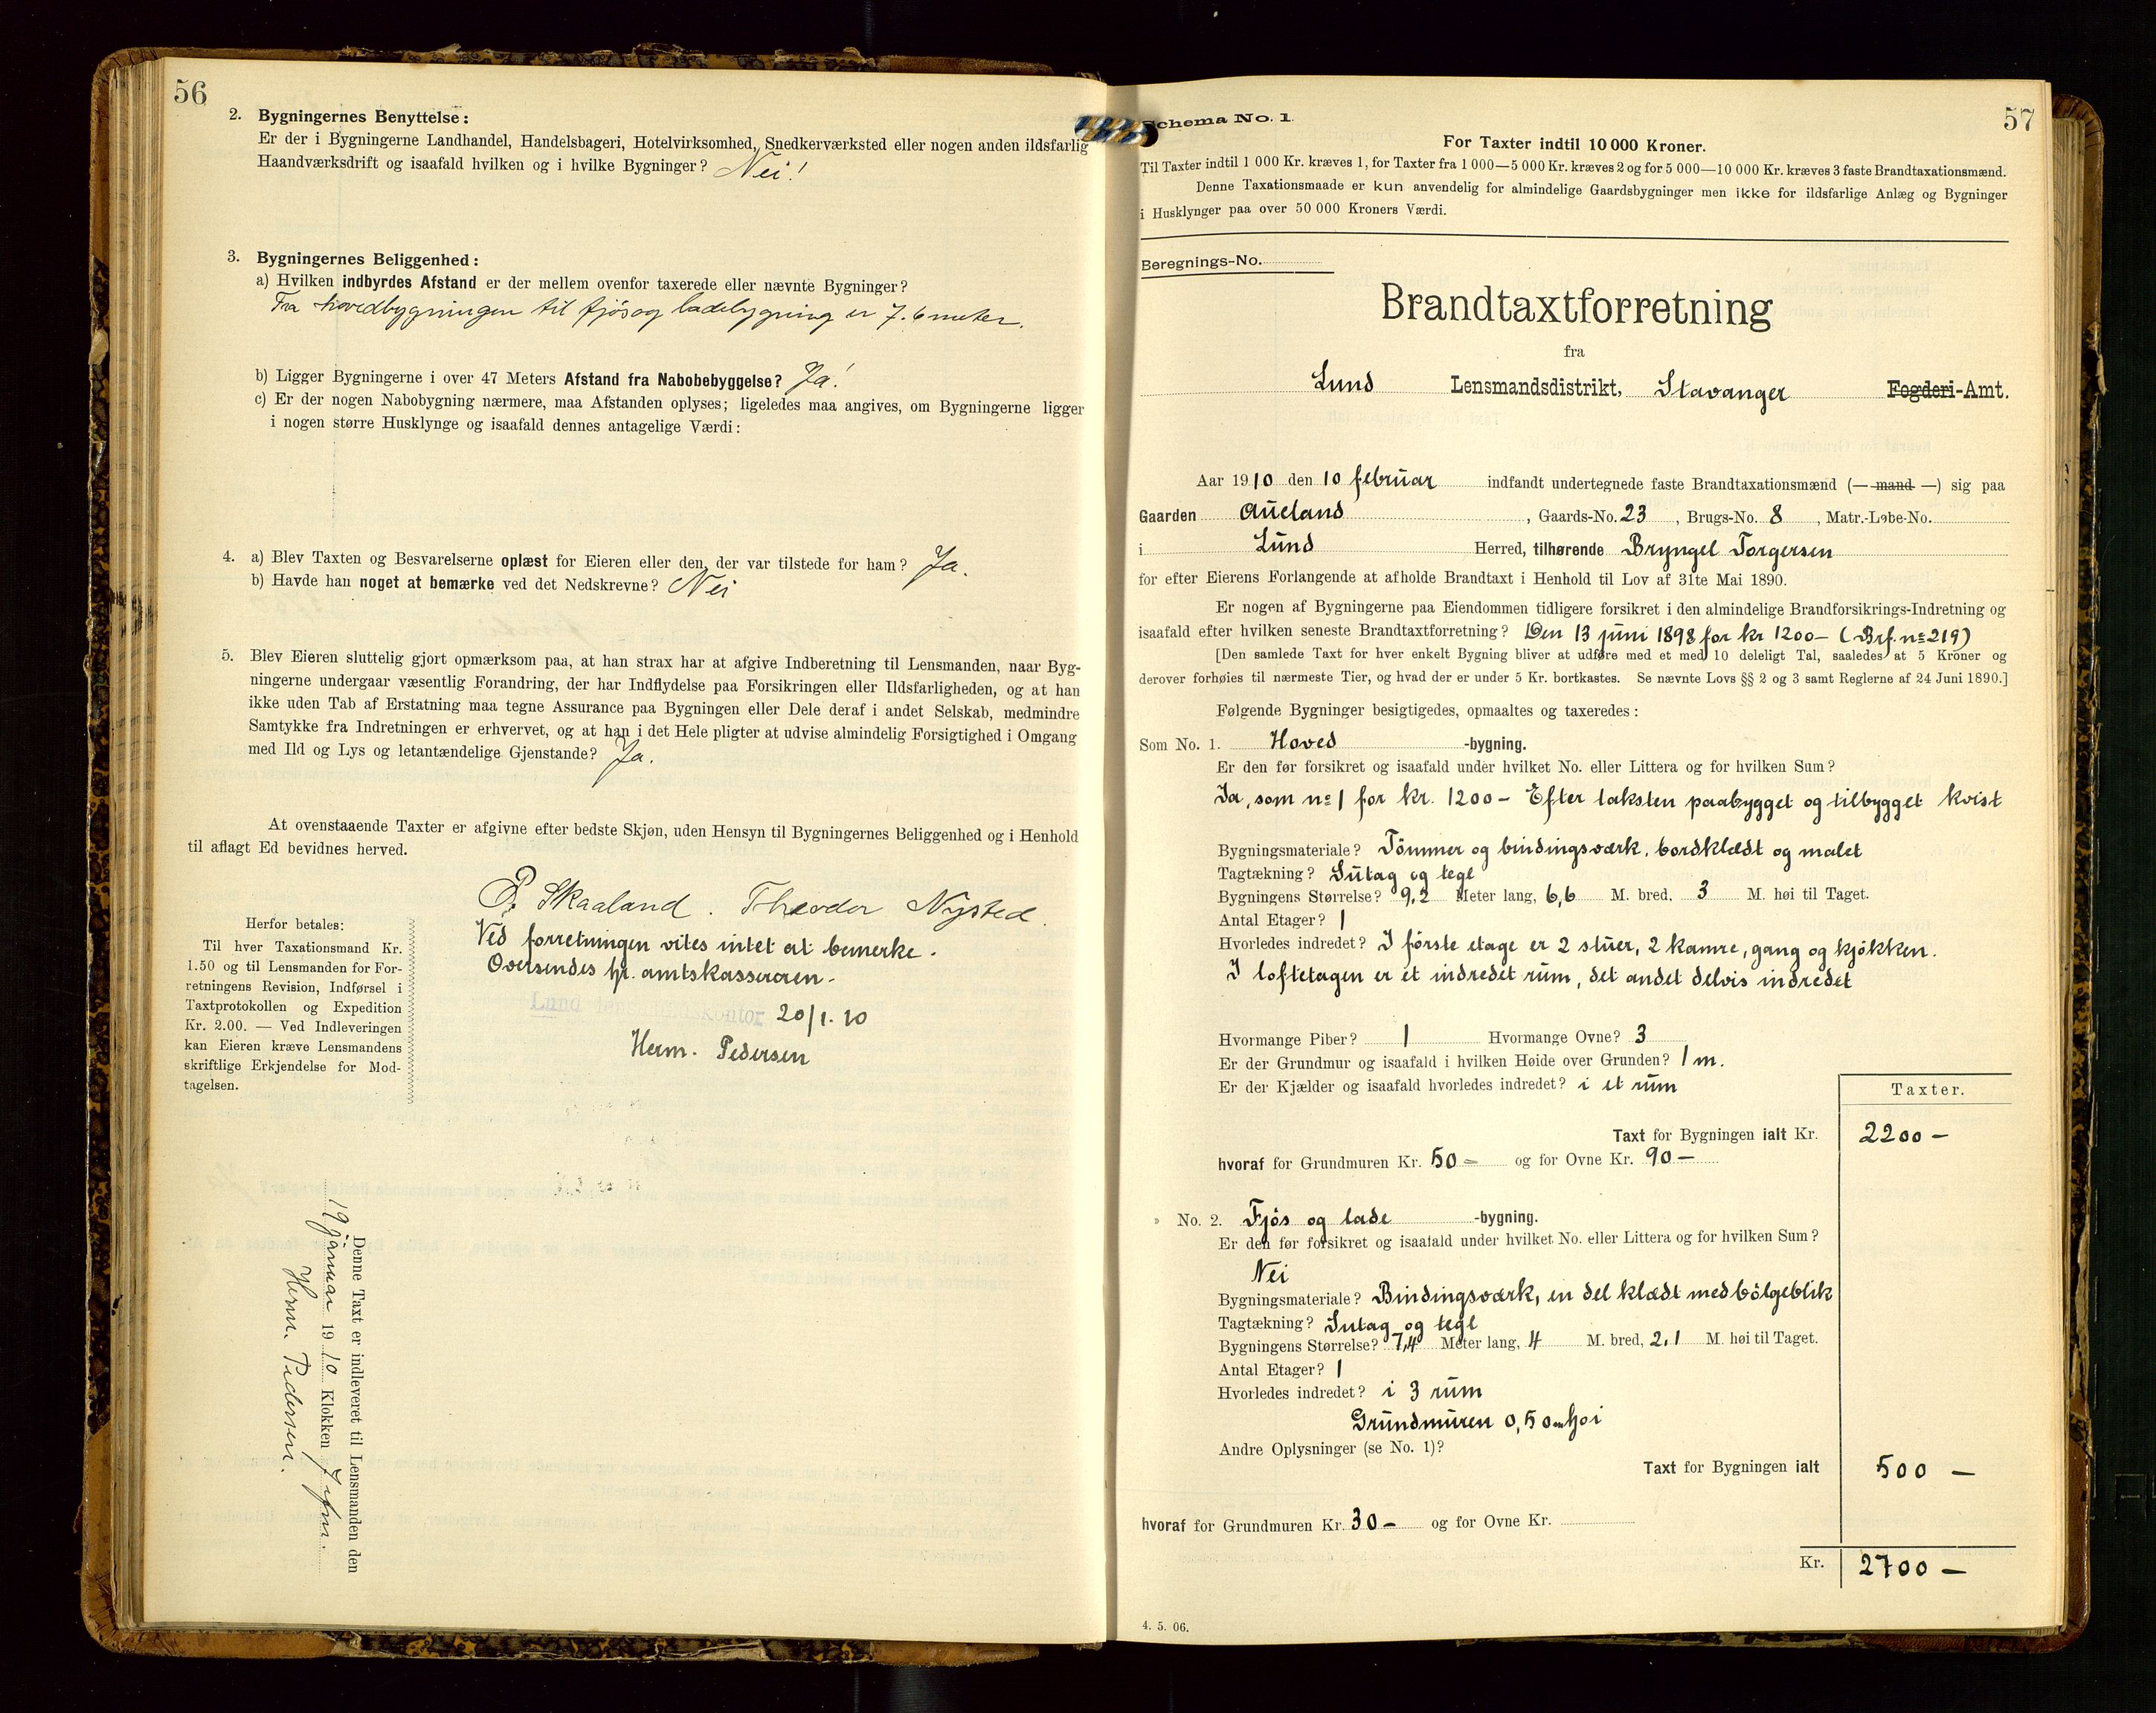 56
2. Bygningernes Benyttelse:
Er der i Bygningerne Landhandel, Handelsbageri, Hotelvirksomhed, Snedkerværksted eller nogen anden ildsfarlig
Haandværksdrift og isaafald hvilken og i hvilke Bygninger? Nei!
3. Bygningernes Beliggenhed:
a) Hvilken indbyrdes Afstand er der mellem ovenfor taxerede eller nævnte Bygninger?
Fra hovedbygningen til fjøs og ladebygning er 7.6 meter.
b) Ligger Bygningerne i over 47 Meters Afstand fra Nabobebyggelse? Ja!
c) Er der nogen Nabobygning nærmere, maa Afstanden oplyses; ligeledes maa angives, om Bygningerne ligger
i nogen større Husklynge og isaafald dennes antagelige Værdi:
4. a) Blev Taxten og Besvarelserne oplæst for Eieren eller den, der var tilstede for ham? Ja.
b) Havde han noget at bemærke ved det Nedskrevne? Nei
5. Blev Eieren sluttelig gjort opmærksom paa, at han strax har at afgive Indberetning til Lensmanden, naar Byg-
ningerne undergaar væsentlig Forandring, der har Indflydelse paa Forsikringen eller Ildsfarligheden, og at han
ikke uden Tab af Erstatning maa tegne Assurance paa Bygningen eller Dele deraf i andet Selskab, medmindre
Samtykke fra Indretningen er erhvervet, og at han i det Hele pligter at udvise almindelig Forsigtighed i Omgang
med Ild og Lys og letantændelige Gjenstande? Ja.
At ovenstaaende Taxter er afgivne efter bedste Skjøn, uden Hensyn til Bygningernes Beliggenhed og i Henhold
til aflagt Ed bevidnes herved.
P. Skaaland. Theodor Nysted
Ved forretningen vites intet at bemerke.
Oversendes hr. amtskassereren.
Lund lensmandskontor 20/1. 10
Herm. Pedersen
Herfor betales:
Til hver Taxationsmand Kr.
1.50 og til Lensmanden for For-
retningens Revision, Indførsel i
Taxtprotokollen og Expedition
Kr. 2.00. — Ved Indleveringen
kan Eieren kræve Lensmandens
skriftlige Erkjendelse for Mod-
tagelsen.
Denne Taxt er indleveret til Lensmanden den
19 januar 1910 Klokken 7 efm.
Herm. Pedersen.
57
Schema No. 1.
For Taxter indtil 10 000 Kroner.
Til Taxter indtil 1 000 Kr. kræves 1, for Taxter fra 1 000—5 000 Kr. kræves 2 og for 5 000—10 000 Kr. kræves 3 faste Brandtaxationsmænd.
Denne Taxationsmaade er kun anvendelig for almindelige Gaardsbygninger men ikke for ildsfarlige Anlæg og Bygninger
i Husklynger paa over 50 000 Kroners Værdi.
Beregnings-No.
Brandtaxtforretning
fra
Lund Lensmandsdistrikt, Stavanger Fogderi-Amt.
Aar 1910 den 10 februar indfandt undertegnede faste Brandtaxationsmænd (— mand —) sig paa
Gaarden Aueland, Gaards-No. 23, Brugs-No. 8, Matr.-Løbe-No.
i Lund Herred, tilhørende Bryngel Torgersen
for efter Eierens Forlangende at afholde Brandtaxt i Henhold til Lov af 31te Mai 1890.
Er nogen af Bygningerne paa Eiendommen tidligere forsikret i den almindelige Brandforsikrings-Indretning og
isaafald efter hvilken seneste Brandtaxtforretning? Den 13 juni 1898 for kr 1200– (Brf. nº 219)
[Den samlede Taxt for hver enkelt Bygning bliver at udføre med et med 10 deleligt Tal, saaledes at 5 Kroner og
derover forhøies til nærmeste Tier, og hvad der er under 5 Kr. bortkastes. Se nævnte Lovs §§ 2 og 3 samt Reglerne af 24 Juni 1890.]
Følgende Bygninger besigtigedes, opmaaltes og taxeredes:
Som No. 1. Hoved -bygning.
Er den før forsikret og isaafald under hvilket No. eller Littera og for hvilken Sum?
Ja, som nº 1 for kr. 1200– Efter taksten paabygget og tilbygget kvist
Bygningsmateriale? Tömmer og bindingsværk, bordklædt og malet
Tagtækning? Sutag og tegl
Bygningens Størrelse? 9,2 Meter lang, 6,6 M. bred, 3 M. høi til Taget.
Antal Etager? 1
Hvorledes indredet? I første etage er 2 stuer, 2 kamre, gang og kjøkken.
I loftetagen er et indredet rum, det andet delvis indredet
Hvormange Piber? 1 Hvormange Ovne? 3
Er der Grundmur og isaafald i hvilken Høide over Grunden? 1 m.
Er der Kjælder og isaafald hvorledes indredet? i et rum
Taxter.
Taxt for Bygningen ialt Kr. 2200 –
hvoraf for Grundmuren Kr. 50 – og for Ovne Kr. 90 –
» No. 2. Fjøs og lade -bygning.
Er den før forsikret og isaafald under hvilket No. eller Littera og for hvilken Sum?
Nei
Bygningsmateriale? Bindingsværk, en del klædt med bölgeblik
Tagtækning? Sutag og tegl
Bygningens Størrelse? 7,4 Meter lang, 4 M. bred, 2,1 M. høi til Taget.
Antal Etager? 1
Hvorledes indredet? i 3 rum
Grundmuren 0,50 m høi
Andre Oplysninger (se No. 1)?
Taxt for Bygningen ialt 500 –
hvoraf for Grundmuren Kr. 30 – og for Ovne Kr.
Kr. 2700 –
4. 5. 06.